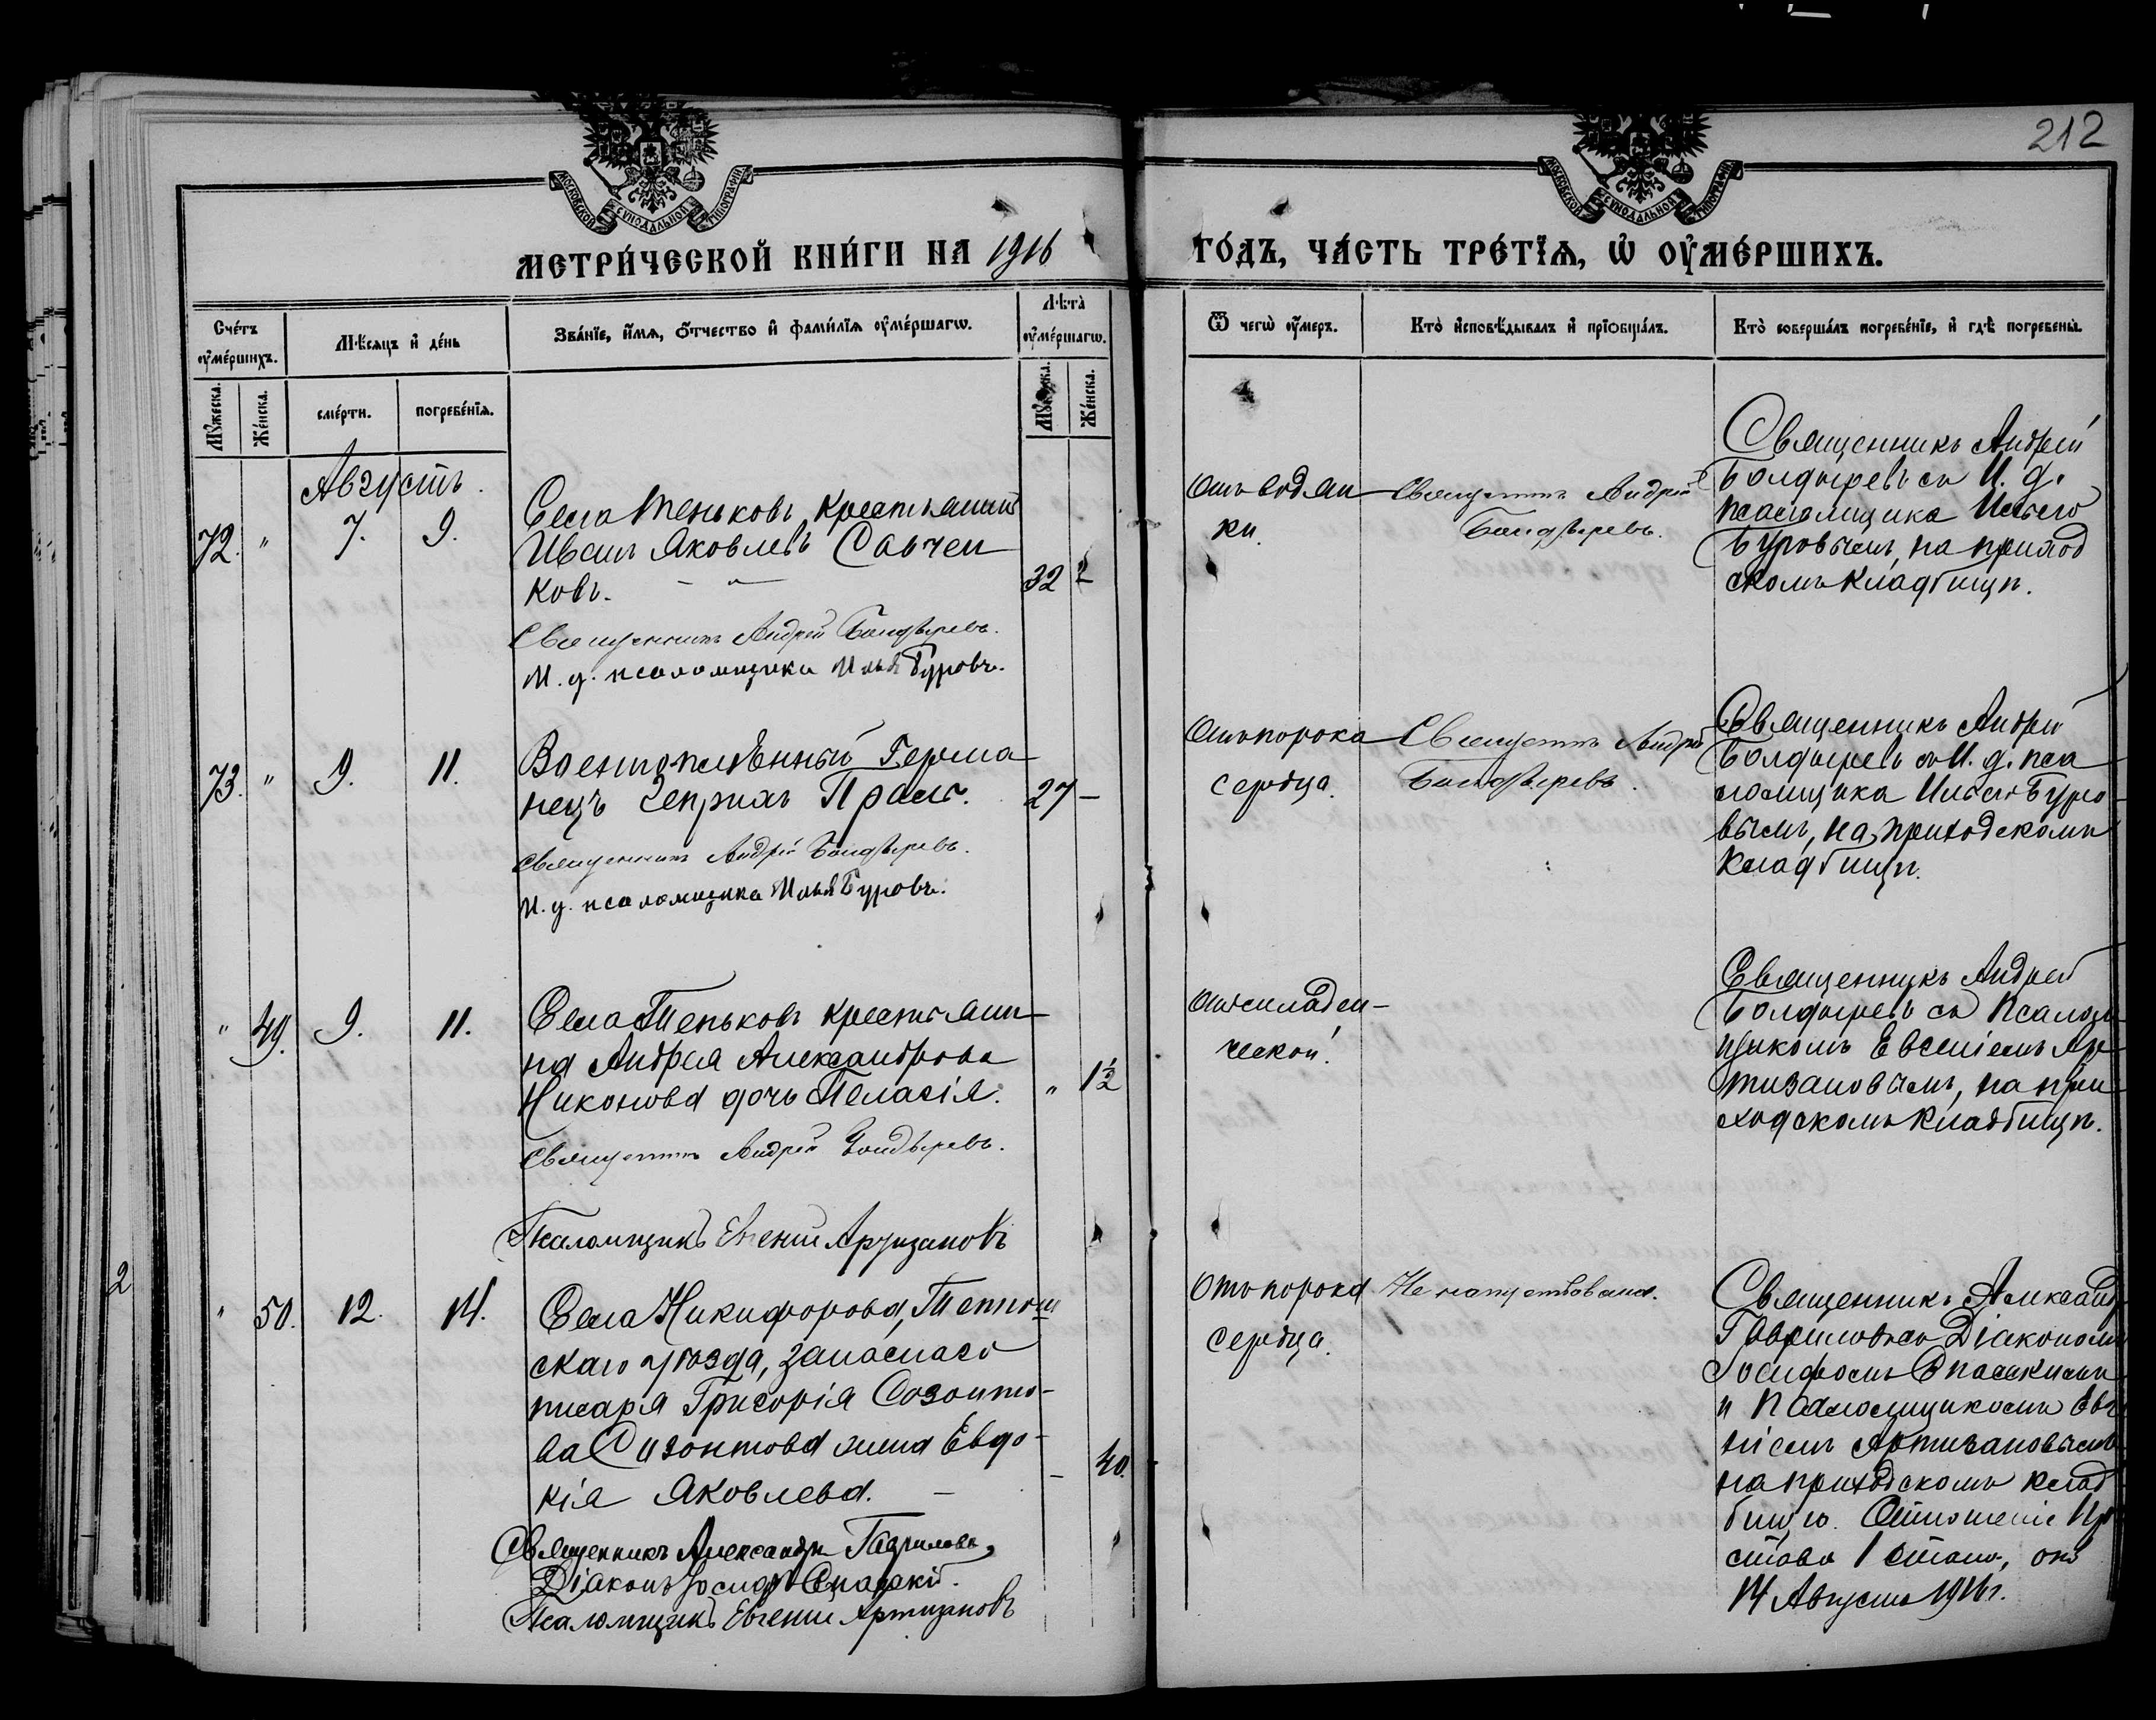 212
МОСКОВСКОЙ СѴНОДАЛЬНОЙ ТИПОГРАФІИ
МОСКОВСКОЙ СѴНОДАЛЬНОЙ ТИПОГРАФІИ
МЕТРИ́ЧЕСКОЙ КНИ́ГИ НА 1916
ГО́ДЪ, ЧА́СТЬ ТРЕ́ТЇѦ, Ѡ҆ ОУ҆МЕ́РШИХЪ.
Сче́тъ оу҆ме́ршихъ.
Мѣ́сяцъ и҆ де́нь
Зва́нїе, и҆́мѧ, ѻ҆́тчество и҆ фами́лїѧ оу҆ме́ршагѡ.
Лѣта̀ оу҆ме́ршагѡ.
Ѿ чегѡ̀ оу҆́меръ.
Кто̀ и҆сповѣ́дывалъ и҆ прїѡбща́лъ.
Кто̀ соверша́лъ погребе́нїе, и҆ гдѣ̀ погребены̀.
Мꙋ́жеска.
Же́нска.
сме́рти.
погребе́нїѧ.
Мꙋ́жеска.
Же́нска.
Августъ.
72. " 7. 9.
Села Теньковъ, крестьянинъ
Иванъ Яковлевъ Савчен
ковъ.
32
Священникъ Андрей Болдыревъ.
И. д. псаломщика Илья Буровъ.
Отъ водян
ки.
Священникъ Андрей
Болдыревъ.
Священникъ Андрей
Болдыревъ съ И. д.
псаломщика Ильею
Буровымъ, на приход
скомъ кладбищѣ.
73. " 9. 11.
Военноплѣнный Герма
нецъ Генрихъ
27 –
Священникъ Андрей Болдыревъ.
И. д. псаломщика Илья Буровъ.
Отъ порока
сердца.
Священникъ Андрей
Болдыревъ.
Священникъ Андрей
Болдыревъ съ И. д. пса
ломщика Ильею Буро
вымъ, на приходскомъ
кладбищѣ.
" 49. 9. 11.
Села Теньковъ крестьяни
на Андрея Александрова
Никонова дочь Пелагія.
" 1½
Священникъ Андрей Болдыревъ.
Псаломщикъ Евгеній Артизановъ
Отъ младен-
ческой.
Священникъ Андрей
Болдыревъ съ Псалом
щикомъ Евгеніемъ Ар
тизановымъ, на при
ходскомъ кладбищѣ.
2
" 50. 12. 14.
Села Никифорова, Тетюш
скаго уѣзда, запаснаго
писаря Григорія Созонто-
ва Сизонтова жена Евдо-
кія Яковлева.
– 40.
Священникъ Александръ Гавриловъ,
Діаконъ Іосифъ Спасскій.
Псаломщикъ Евгеній Артизановъ
Отъ порока
сердца.
Не напутствована.
Священникъ Александръ
Гавриловъ съ Діакономъ
Іосифомъ Спасскимъ
и Псаломщикомъ Евге
ніемъ Артизановымъ
на приходскомъ клад
бищѣ. Отношеніе Пр
става 1 стана, отъ
14 Августа 1916 г.